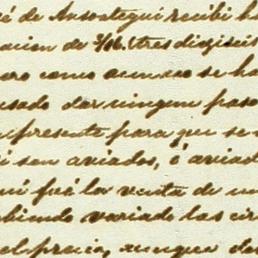 é de Ansostegui recibi ha
acion de tres dieziseis
ero como aun no se ha
usado dar ningun paso
presente para que se
i son aviados, é aviad
ui fué la venta de un
biendo variado las cir
el precio, aunque de